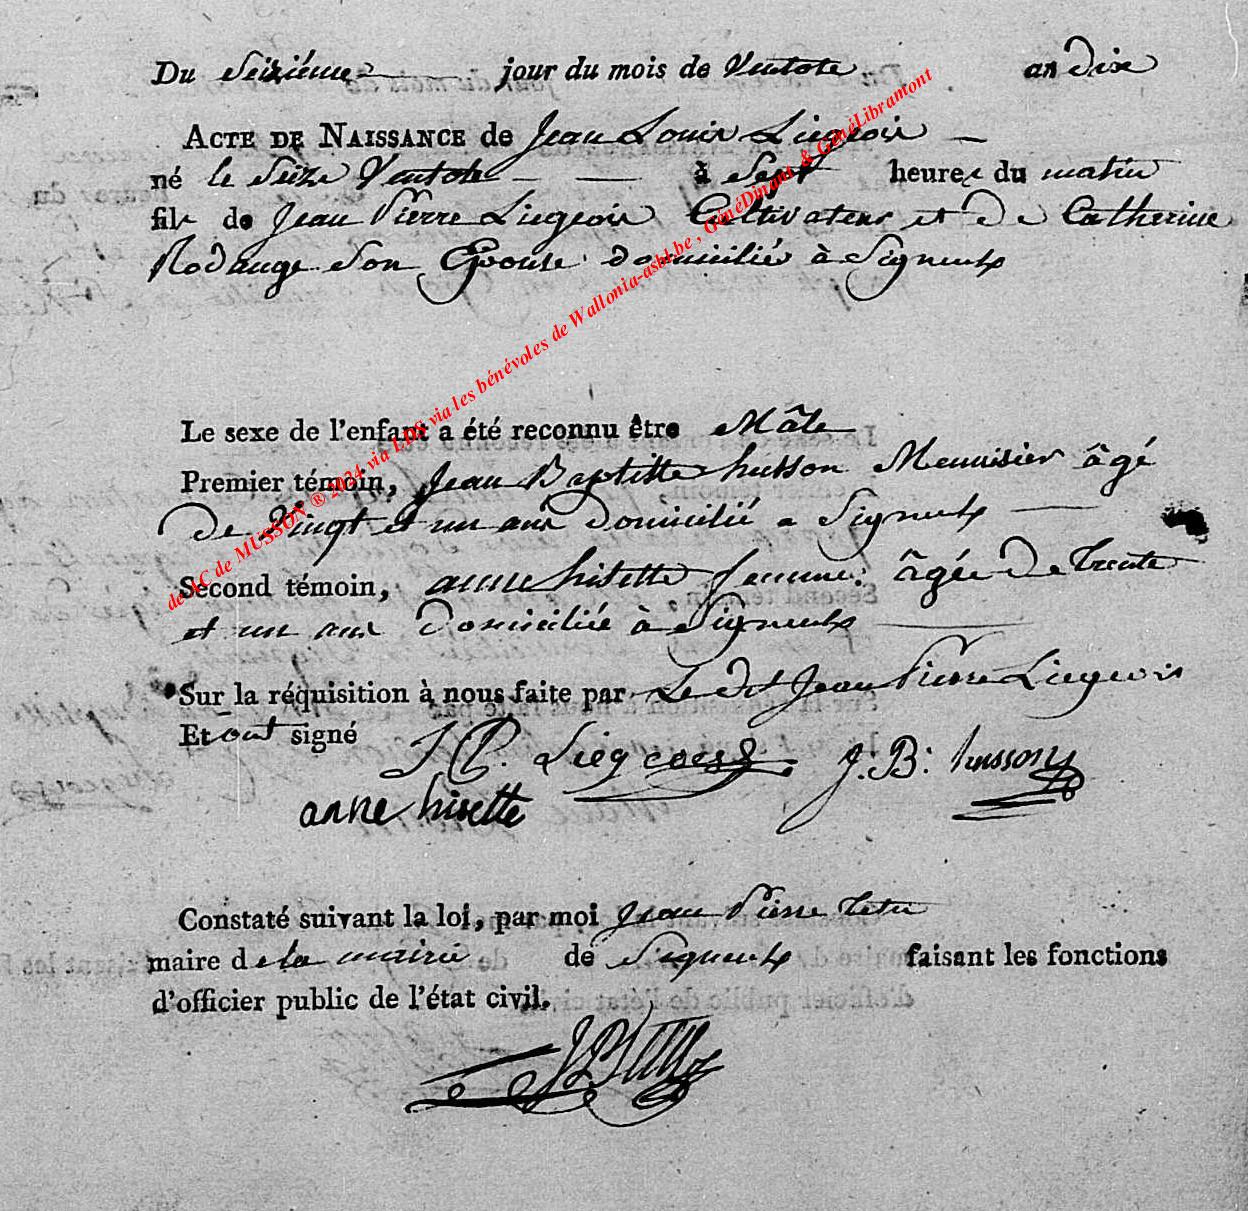 Du Seiziéme jour du mois de Ventose an dix
ACTE DE NAISSANCE de Jean Louis Liegeois
né le Seize Ventose à Sept heures du matin
fils de Jean Pierre Liegeois Cultivateur et de Catherine
Rodange Son Epouse domicilié à Signeulx
Le sexe de l'enfant a été reconnu être Mâle
Premier témoin, Jean Baptiste husson Menuisier âgé
de Vingt et un ans domicilié a Signeulx
Second témoin, anne hisette femme âgée de trente
et un ans domiciliée à Signeulx
Sur la réquisition à nous faite par Le dit Jean Pierre Liegeois
Et ont signé
J P. Liegeois J: B: husson
anne hisette
Constaté suivant la loi, par moi Jean Pierre
maire de la mairie de Signeulx faisant les fonctions
d'officier public de l'état civil.
de AC de MUSSON ® 2024 via LDS via les bénévoles de Wallonia-asbl.be , GénéDinant & GénéLibramont